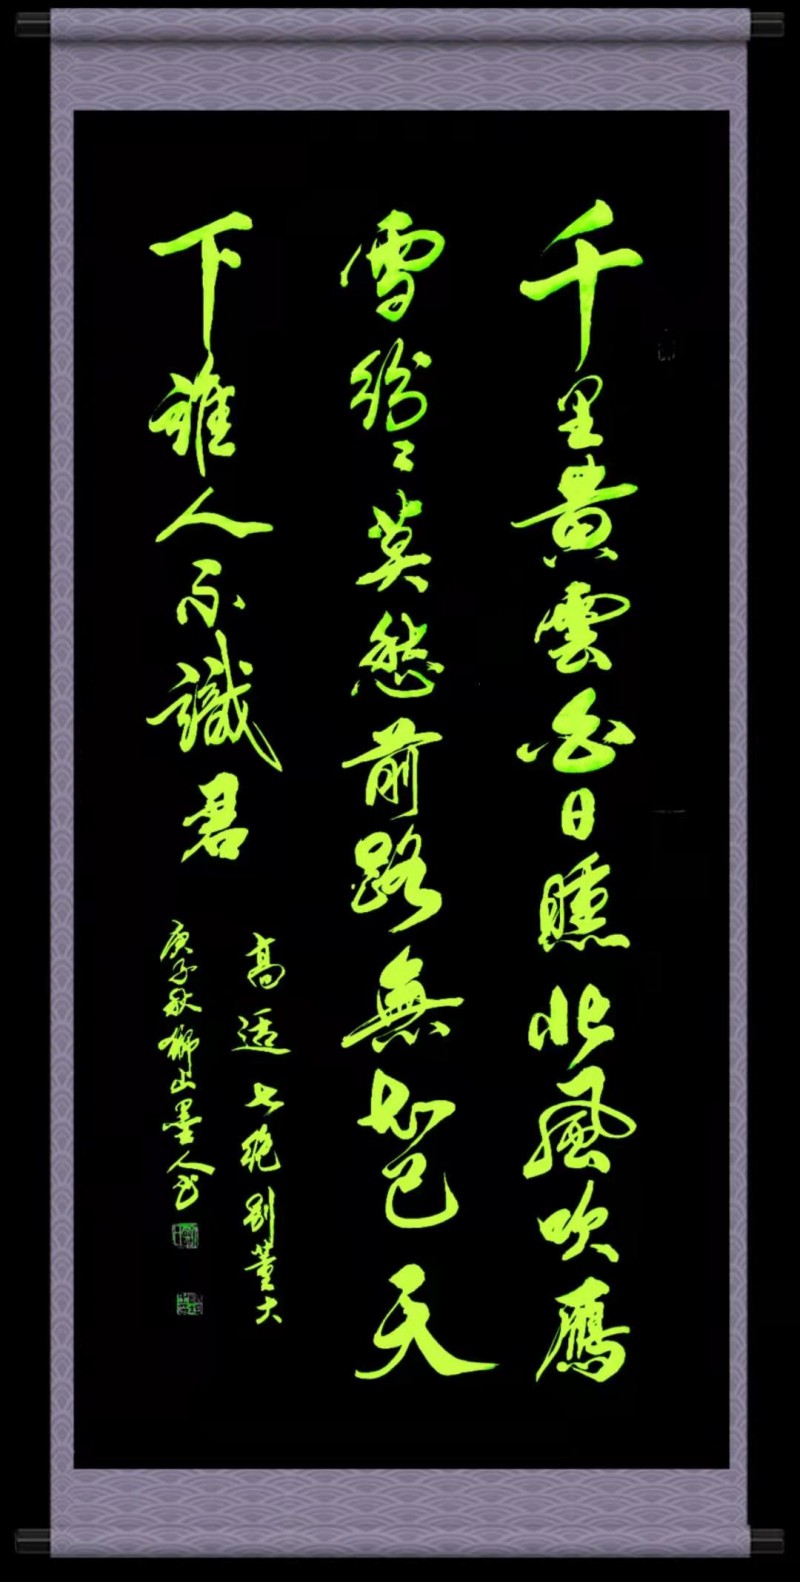 千里黄雲白日曛北風吹鴈
雪紛〻莫愁前路無知己天
下誰人不識君
高适七绝别董大
庚子秋山墨人书